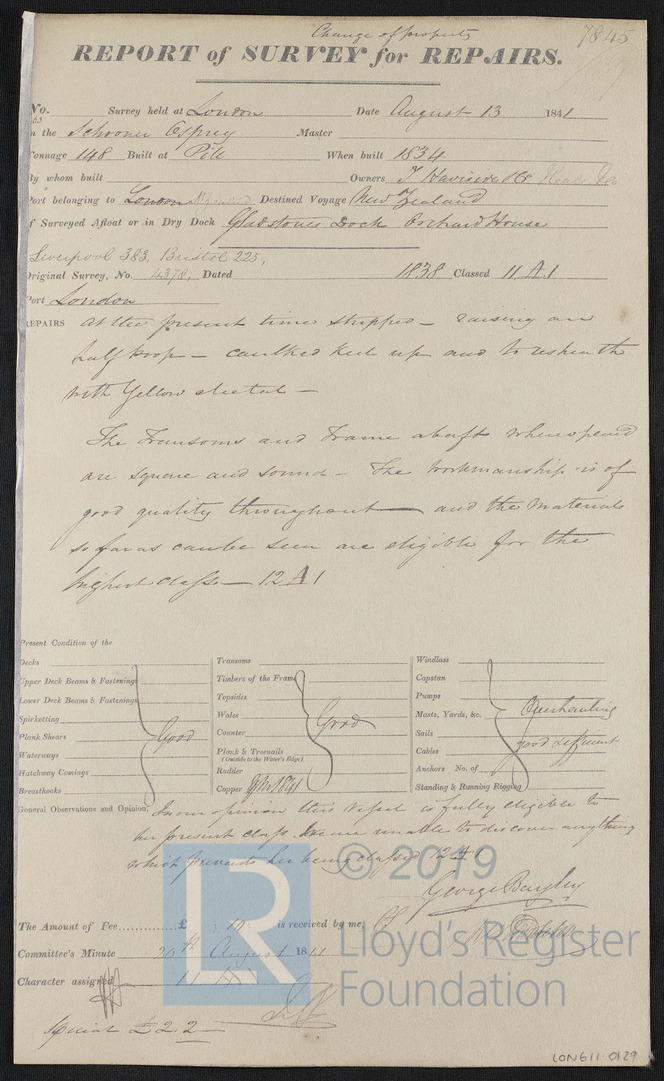 Change of property
7845
REPORT of SURVEY for REPAIRS.
No. Survey held at London Date August 13 1841
on the Schooner Osprey Master
Tonnage 148 Built at Pill When built 1834
By whom built Owners
Port belonging to London Destined Voyage New Zealand
If Surveyed Afloat or in Dry Dock Gladstones Dock Orchard House
Liverpool 383, Bristol 225,
Original Survey, No. 4378, Dated 1838 Classed 11 A 1
Port London
REPAIRS At the present time stripped — raising an
half poop — caulked keel up and to resheath
with Yellow Metal —
The Transoms and Frame abaft when opened
are square and sound — The Workmanship is of
good quality throughout — and the Materials
so far as can be seen are eligible for the
highest class — 12 A 1
Present Condition of the
Decks
Upper Deck Beams & Fastenings
Lower Deck Beams & Fastenings
Spirketting
Plank Shears Good
Waterways
Hatchway Comings
Breasthooks
Transoms
Timbers of the Frame
Topsides
Wales Good
Counter
Plank & Treenails
(Outside to the Water's Edge)
Rudder
Copper 1841
Windlass
Capstan
Pumps
Masts, Yards, &c. Overhauling
Sails good
Cables
Anchors No. of
Standing & Running Rigging
General Observations and Opinion, In our opinion this vessel is fully eligible to
her present class. We are unable to discover anything
which prevents her being classed 12 A 1
George Bayley
The Amount of Fee............ £ : 10 : is received by me,
Committee's Minute 20th August 1841
Character assigned
Special £2.2
© 2019
LR
Lloyd's Register
Foundation
LON611-0129